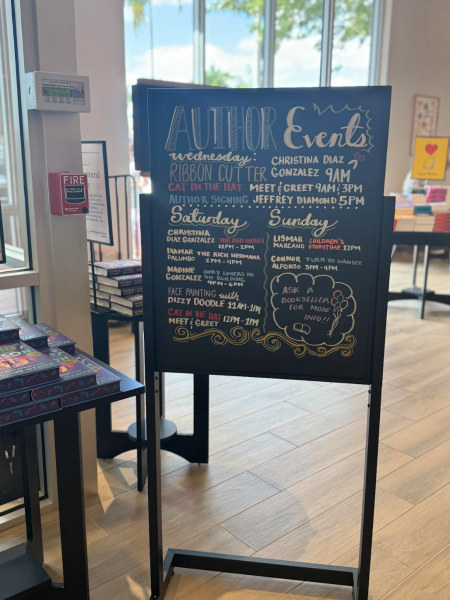 AUTHOR Events
wednesday:
RIBBON CUTTER CHRISTINA DIAZ GONZALEZ 9AM
CAT IN THE HAT MEET & GREET 9AM & 3PM
AUTHOR SIGNING JEFFREY DIAMOND 5PM
Saturday
CHRISTINA
DIAZ GONZALEZ
12PM - 2PM
IXAMAR
PALUMBO THE RICH HERMANA
2PM - 4PM
NADINE
GONZALEZ
THE BUILDING
4PM - 6PM
FACE PAINTING with
DIZZY DOODLE 11AM-1PM
CAT IN THE HAT
MEET & GREET 12PM-1PM
Sunday
LISMAR CHILDREN'S
MARCANO STORYTIME 12PM
CONNOR TURN TO WANDER
ALFONSO 3PM-4PM
ASK A
BOOKSELLER
FOR MORE
INFO!!
FIRE